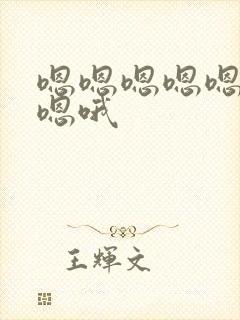 嗯嗯嗯嗯嗯
嗯哦
王輝文